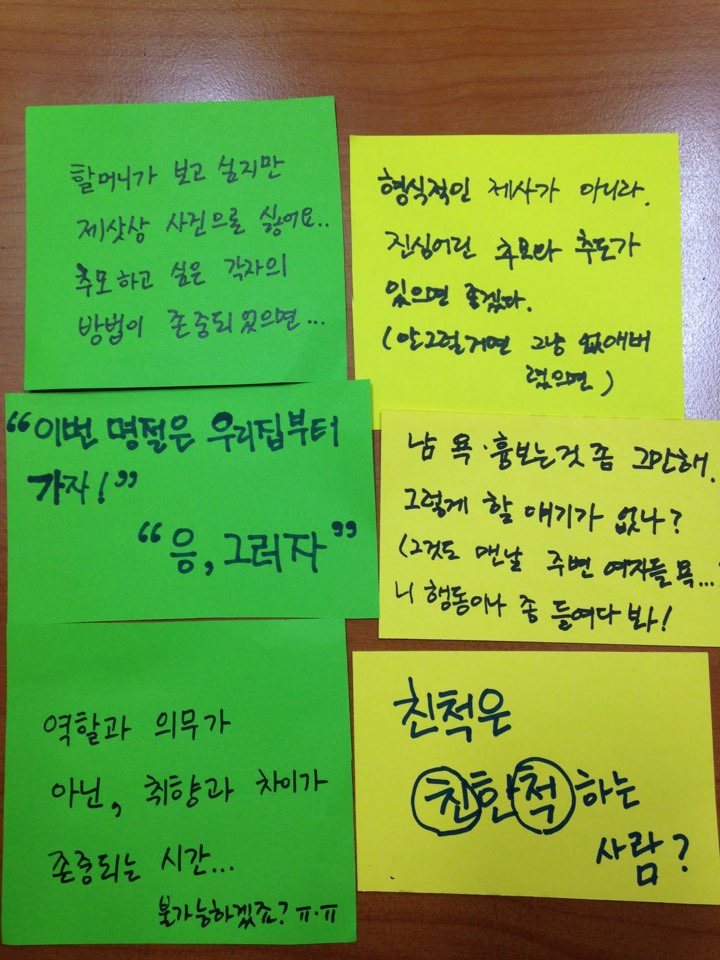 할머니가 보고 싶지만
제삿상 사진으로 싫어요..
추모하고 싶은 각자의
방법이 존중되었으면...
형식적인 제사가 아니라.
진심어린 추모와 추도가
있으면 좋겠다.
(안그럴거면 그냥 없애버
렸으면)
"이번 명절은 우리집부터
가자!"
"응, 그러자"
남 욕·흉보는것 좀 그만해.
그렇게 할 얘기가 없나?
(그것도 맨날 주변 여자들 욕...
니 행동이나 좀 들여다 봐!
역할과 의무가
아닌, 취향과 차이가
존중되는 시간...
불가능하겠죠? ㅠ.ㅠ
친척은
친한척 하는
사람?